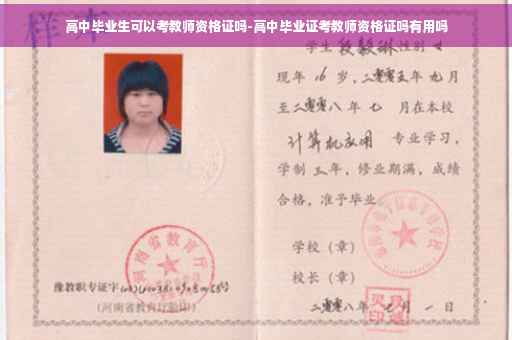 高中毕业生可以考教师资格证吗-高中毕业证考教师资格证吗有用吗
学生段毅琳性别 女
现年 16 岁,二零零五年 九月
至二零零八年 七 月在本校
计算机应用 专业学习,
学制 三年,修业期满,成绩
合格,准予毕业
学校(章)
校长(章)
河南省教育厅
豫教职专证字
(河南省教育厅验印)
二零零八年 七 月 一 日